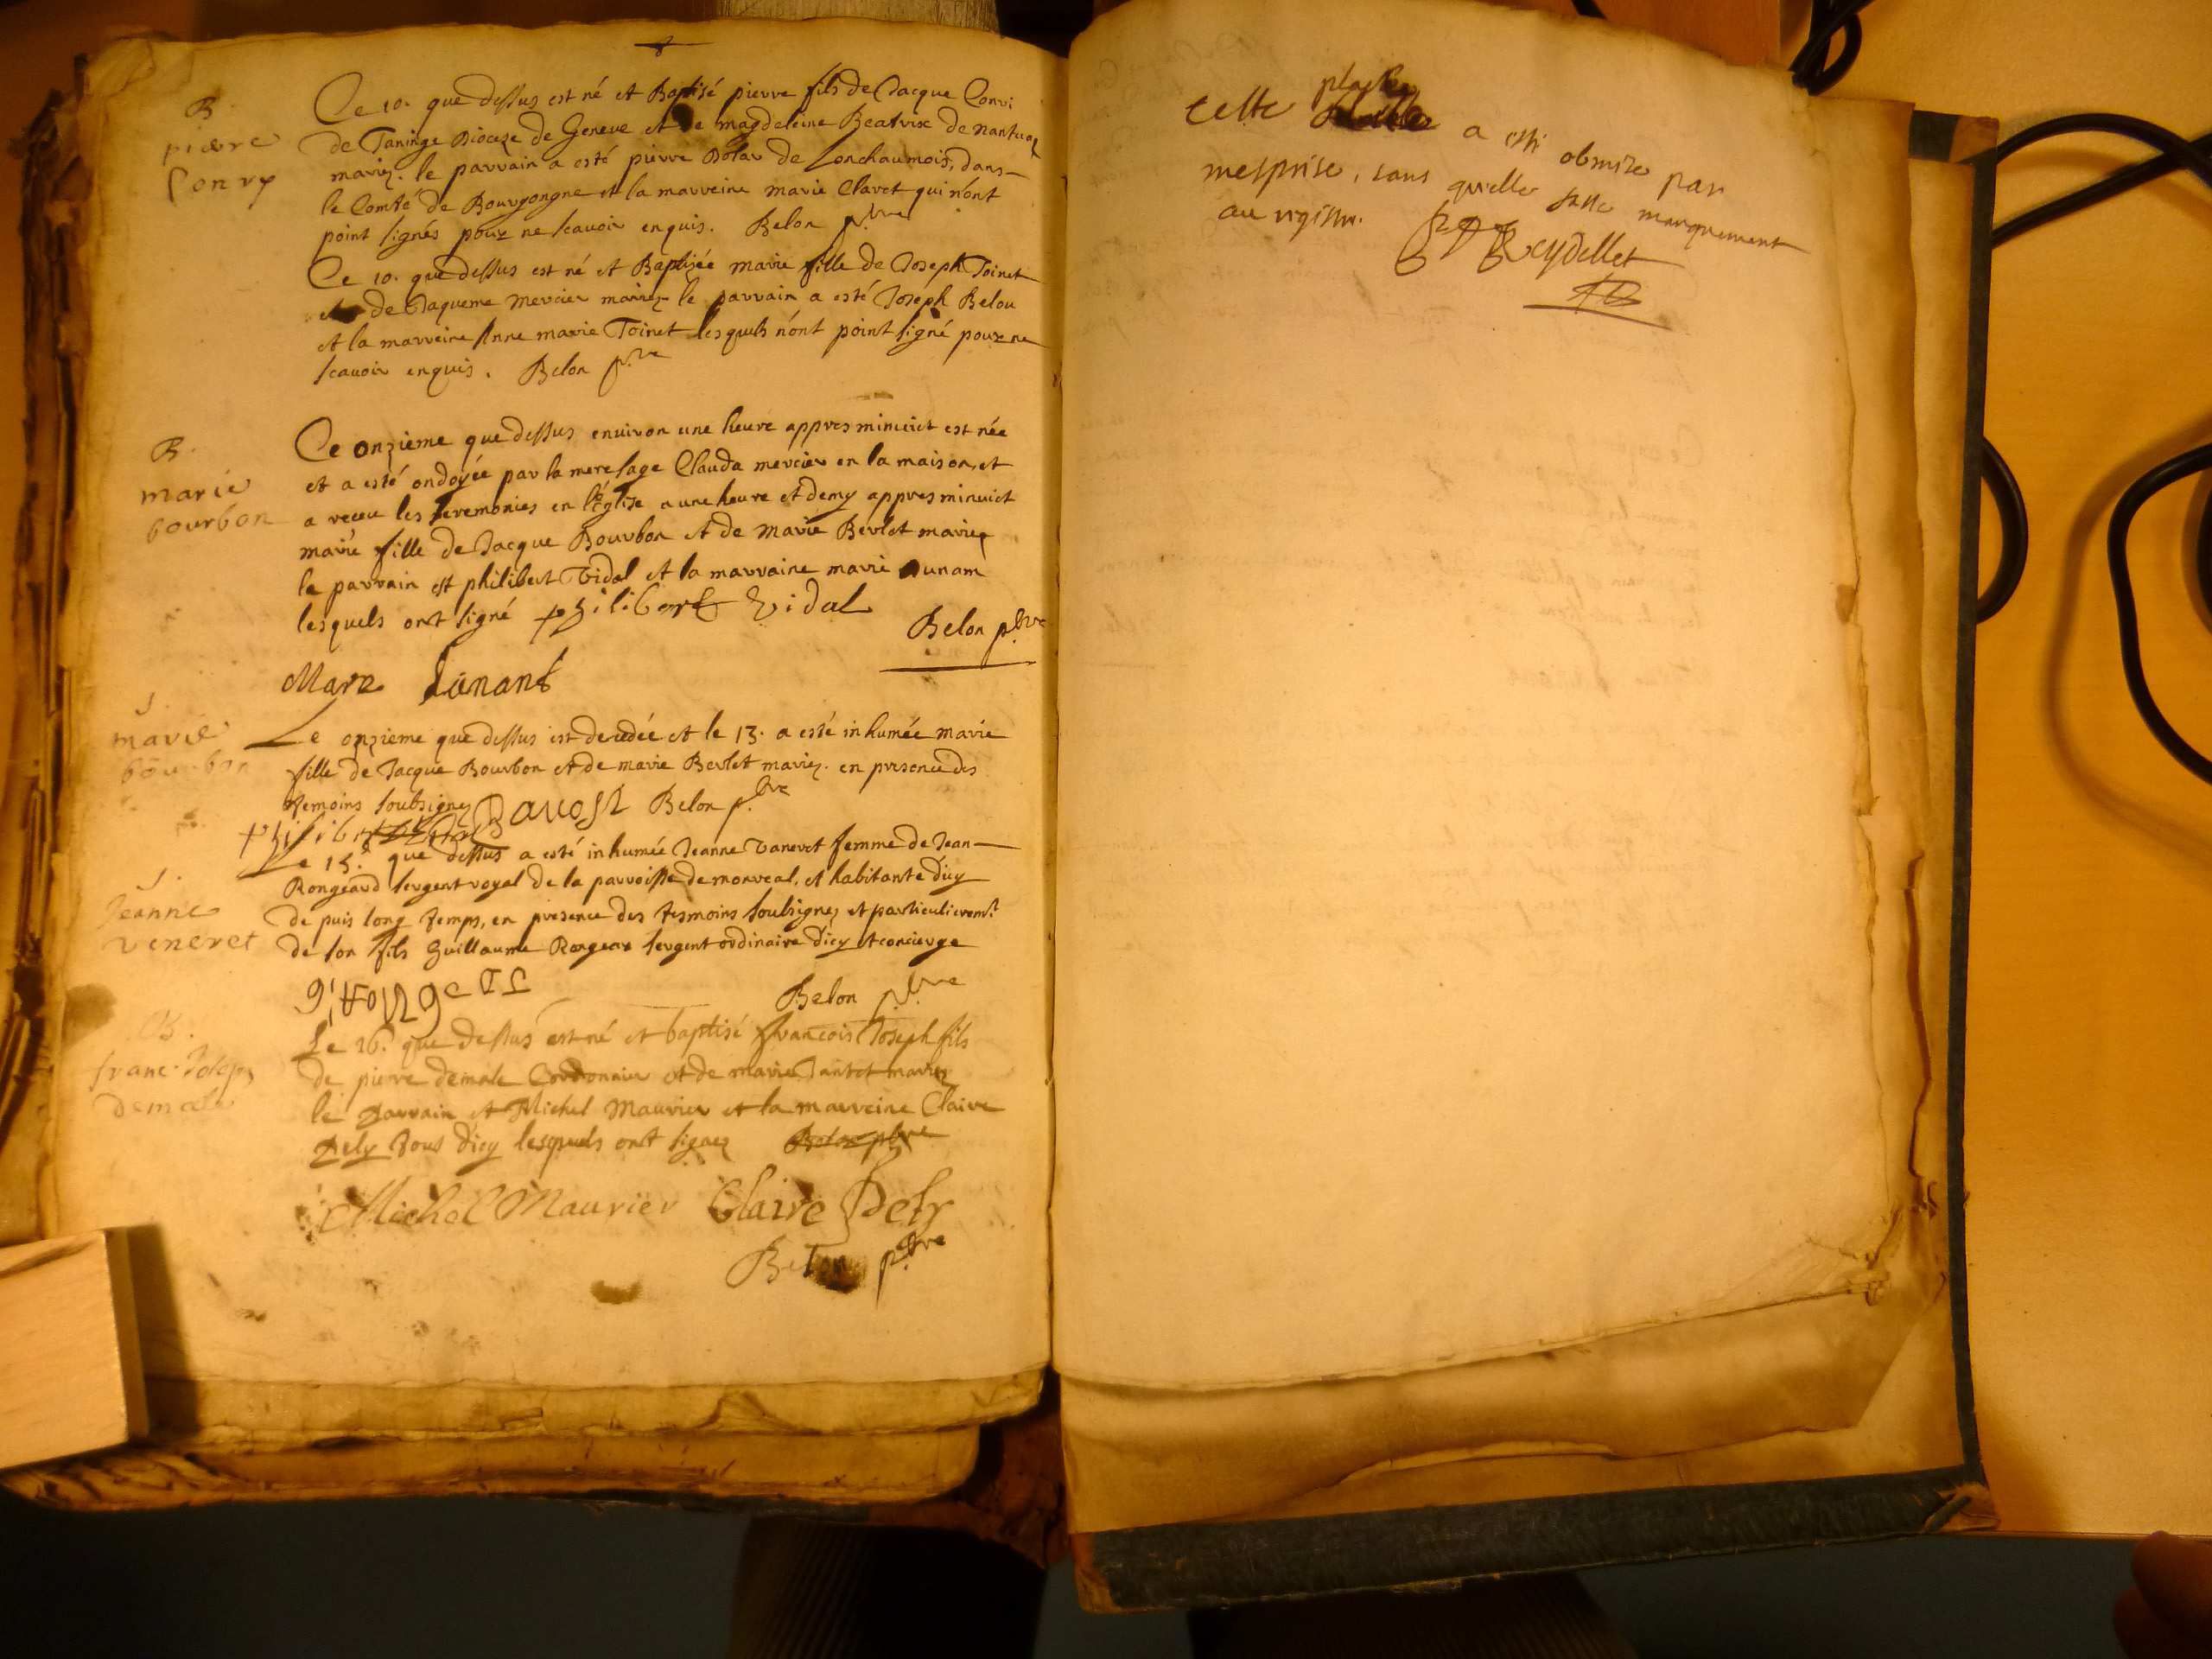 B
pierre
Convy
Ce 10. que dessus est né et Baptisé pierre fils de Jacque Convi
de Taninge Dioceze de Geneve et de magdeleine Beatrix de nantua
mariez. le parrain a esté pierre Bolar de Lonchaumois, dans
le Comté de Bourgongne et la marreine marie Claret qui n'ont
point signés pour ne scauoir enquis. Belon pbre
Ce 10. que dessus est né et Baptizée marie fille de Joseph Toinet
et de Jaqueme mercier mariez le parrain a esté Joseph Belou
et la marreine Anne marie Toinet lesquels n'ont point signé pour ne
scauoir enquis. Belon pbre
B.
marie
bourbon
Ce onzieme que dessus enuiron une heure appres minuict est née
et a esté ondoyée par la mere sage Clauda mercier en la maison, et
a receu les seremonies en l'Eglise a une heure et demy appres minuict
marie fille de Jacque Bourbon et de marie Berlet mariez
le parrain est philibert Vidal et la marraine marie Dunam
lesquels ont signé philibert Vidal
Belon pbre
Marie Dunant
S.
marie
bourbon
Le onzieme que dessus est decedée et le 13. a esté inhumée marie
fille de Jacque Bourbon et de marie Berlet mariez. en presence des
temoins soubsignez Belon pbre
philibert Vidal
S.
Jeanne
veneret
Le 15. que dessus a esté inhumée Jeanne vaneret femme de Jean
Rongeard sergent royal de la parroisse de monreal, et habitante d'icy
de puis long temps, en presence des tesmoins soubsignez et particulieremt
de son fils Guillaume Rongear sergent ordinaire d'icy et concierge
Belon pbre
B.
franc. Joseph
demale
Le 26. que dessus est né et baptisé francois Joseph fils
de pierre demale Cordonnier et de marie Jantet mariez
le parrain et Michel Maurier et la marreine Claire
Dely tous d'icy lesquels ont signez Belon pbre
Michel Maurier Claire Dely
Belon pbre
cette plache a esté obmise par
mesprise, sans qu'elle fasse manquement
au registre.
Reydellet